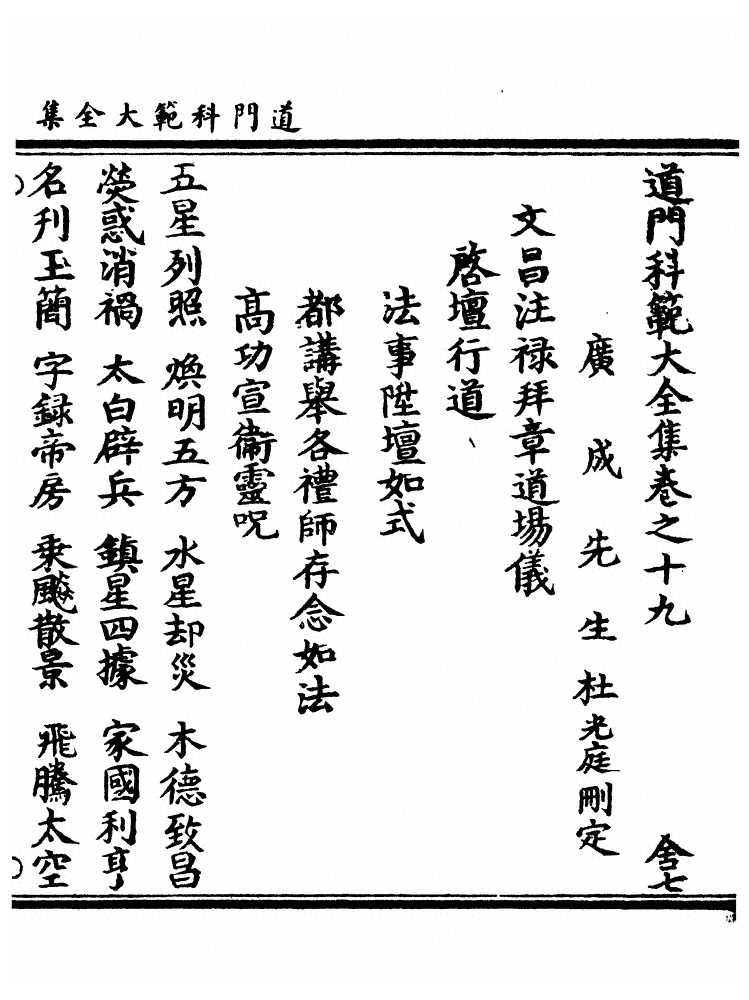 道門科範大全集
道門科範大全集卷之十九 舍七
廣成先生杜光庭刪定
文昌注祿拜章道場儀
啓壇行道
法事陞壇如式
都講舉各禮師存念如法
高功宣衞靈呪
五星列照 煥明五方 水星却災 木德致昌
熒惑消禍 太白辟兵 鎮星四據 家國利亨
名刋玉簡 字録帝房 乘飈散景 飛騰太空